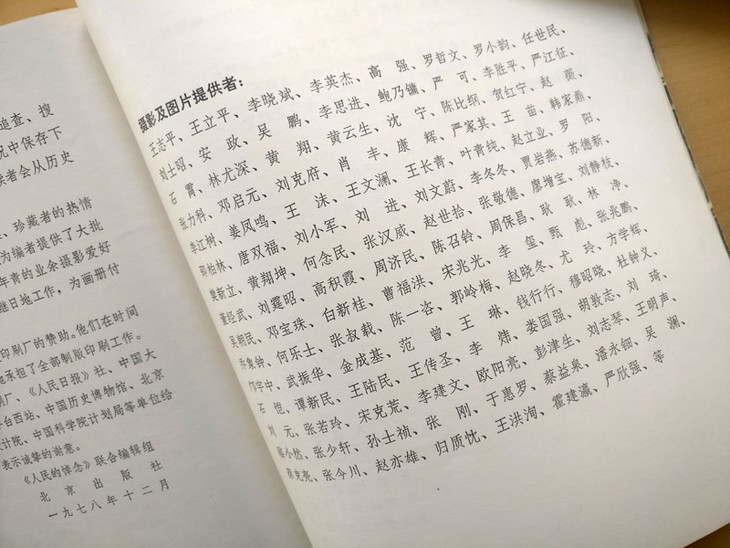 追查、搜
况中保存下
读者会从历史
、珍藏者的热情
为编者提供了大批
年青的业余摄影爱好
继日地工作,为画册付
印刷厂的赞助。他们在时间
承担了全部制版印刷工作。
厂、《人民日报》社、中国大
平台西站、中国历史博物馆、北京
设计院、中国科学院计划局等单位给
表示诚挚的谢意。
《人民的悼念》联合编辑组
北京出版社
一九七八年十二月
摄影及图片提供者:
王志平、王立平、李晓斌、李英杰、高强、罗哲文、罗小韵、任世民、
刘士昭、安政、吴鹏、李思进、鲍乃镛、严可、李胜平、严江征、
石霄、林尤深、黄翔、黄云生、沈宁、陈比纲、贺红宁、赵薇、
张力科、邓启元、刘克府、肖丰、康辉、严家其、王苗、韩家鼎、
李江树、姜凤鸣、王沫、王文澜、王长青、叶青纯、赵立业、罗阳、
鄂柏林、唐双福、刘小军、刘进、刘文蔚、李冬冬、贾岩燕、苏德新、
樊新立、黄翔坤、何念民、张汉威、赵世拾、张敬德、廖增宝、刘静枝、
董经武、刘霆昭、高积霞、周济民、陈召铃、周保昌、耿耿、林净、
吴朝民、邓宝珠、白新桂、曹福洪、宋兆光、李玺、甄彪、张兆鹏、
乔象钟、何乐士、张叔载、陈一咨、郭岭梅、赵晓冬、尤玲、方学辉、
邝宇中、武振华、金成基、范曾、王琳、钱行行、穆昭晓、杜钟义、
石恺、谭新民、王陆民、王传圣、李炜、娄国强、胡敦志、刘琦、
刘元、张若玲、宋克荒、李建文、欧阳亮、彭津生、刘志琴、王明声、
黎小然、张少轩、孙士祯、张刚、于惠罗、蔡益泉、潘永钿、吴澜、
克亮、张今川、赵亦雄、归质忱、王洪洵、霍建瀛、严欣强、等